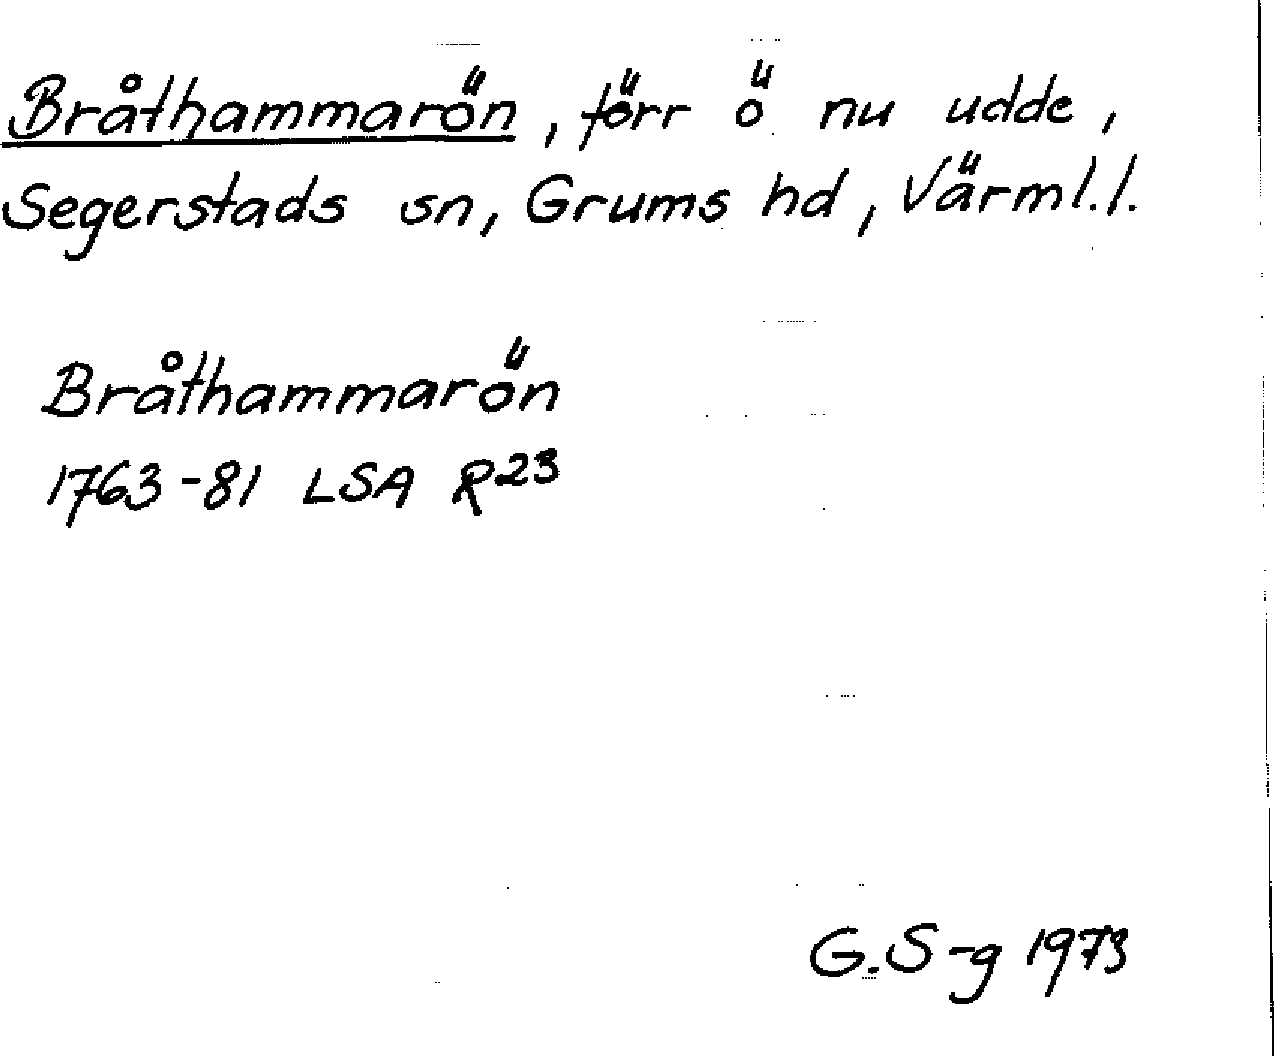 Bråthammarön, förr ö nu udde,
Segerstads sn, Grums hd, Värml.l.
Bråthammarön
1763-81 LSA R23
G.S-g 1973